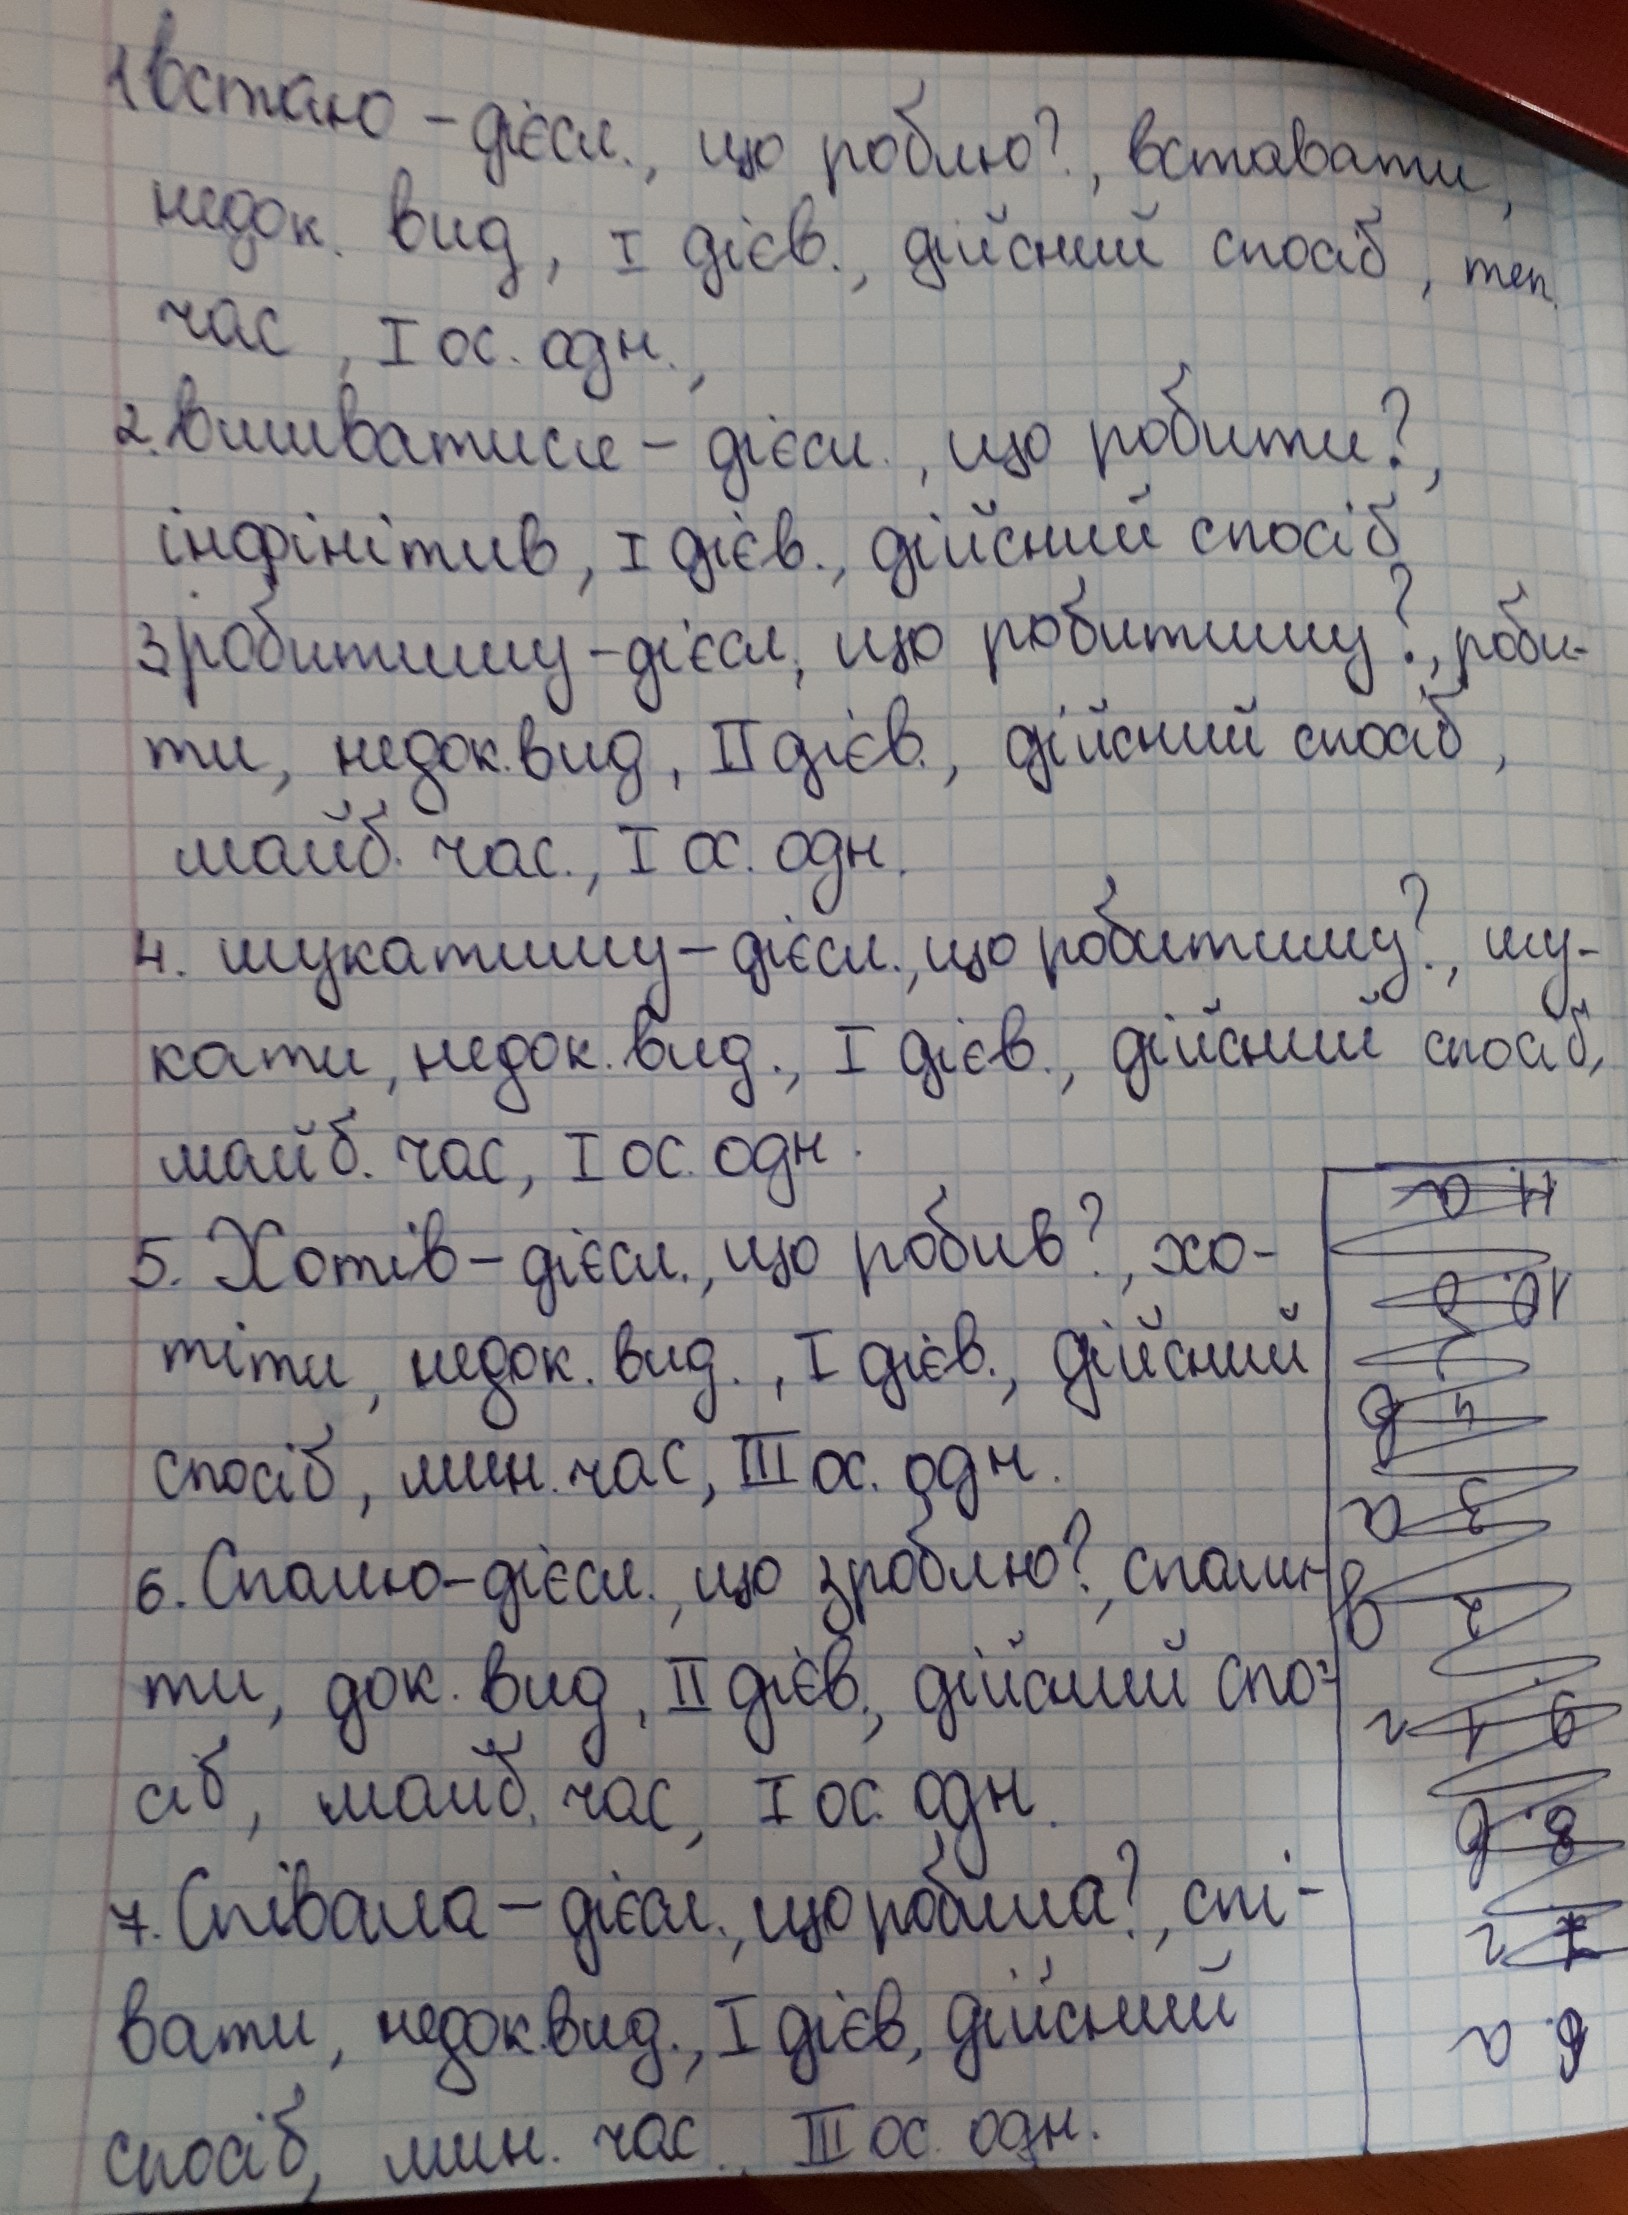 1 встаю – дієсл., що роблю?, вставати,
недок. вид, І дієв., дійсний спосіб, теп.
час, І ос. одн.,
2. вишиватися – дієсл., що робити?,
інфінітив, І дієв., дійсний спосіб
3 робитиму – дієсл, що робитиму?, роби-
ти, недок. вид, ІІ дієв., дійсний спосіб,
майб. час., І ос. одн.
4. шукатиму – дієсл., що робитиму?, шу-
кати, недок. вид., І дієв., дійсний спосіб,
майб. час, І ос. одн.
5. Хотів – дієсл., що робив?, хо-
тіти, недок. вид., І дієв., дійсний
спосіб, мин. час, ІІІ ос. одн.
6. Спалю – дієсл., що зроблю?, спали-
ти, док. вид, ІІ дієв., дійсний спо-
сіб, майб. час, І ос. одн.
7. Співала – дієсл., що робила?, спі-
вати, недок. вид., І дієв, дійсний
спосіб, мин. час, ІІІ ос. одн.
6. а
7 г
8. в
9 1 г
2 в
3 а
4 в
11 а